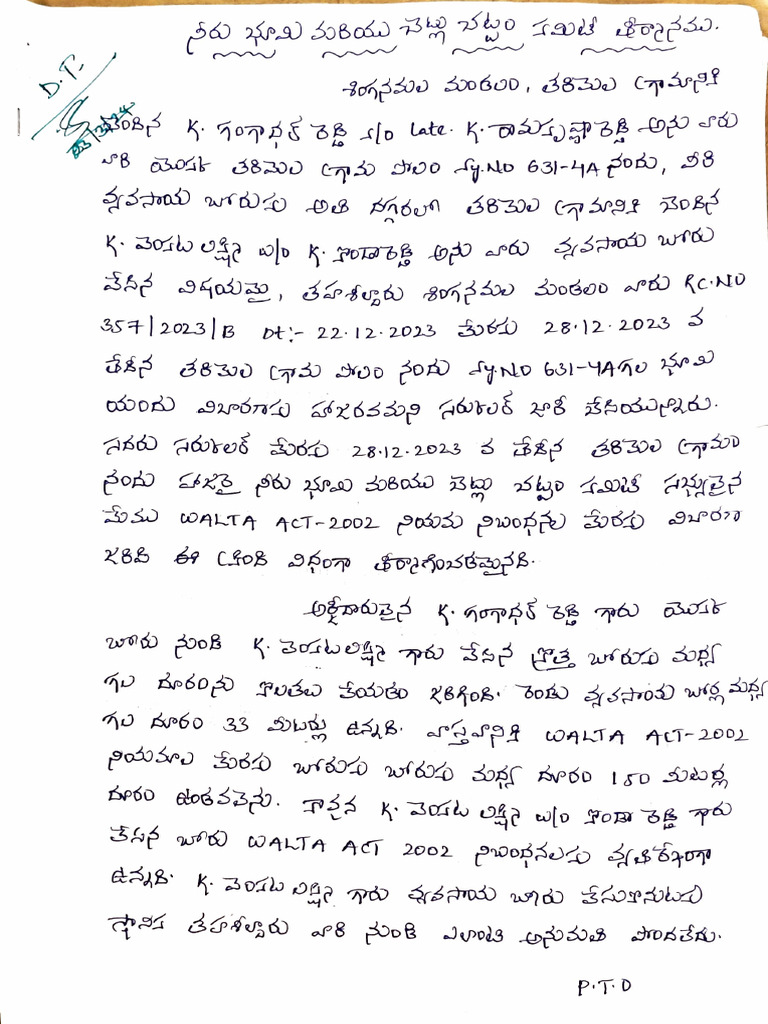 నీరు భూమి మరియు చెట్లు చట్టం కమిటీ తీర్మానము.
D.T.
శింగనమల మండలం, తరిమెల గ్రామానికి
చెందిన K. గంగాధర్ రెడ్డి S/O Late. K. రామకృష్ణారెడ్డి అను వారు
వారి యొక్క తరిమెల గ్రామ పొలం Sy.NO 631-4A నందు, వీరి
వ్యవసాయ బోరుకు అతి దగ్గరలో తరిమెల గ్రామానికి చెందిన
K. వెంకట లక్ష్మి W/O K. కొండారెడ్డి అను వారు వ్యవసాయ బోరు
వేసిన విషయమై, తహశీల్దారు శింగనమల మండలం వారు RC.NO
357/2023/B Dt:- 22.12.2023 మేరకు 28.12.2023 వ
తేదీన తరిమెల గ్రామ పొలం నందు Sy.NO 631-4A గల భూమి
యందు విచారణకు హాజరవమని సర్కులర్ జారీ చేసియున్నారు.
సదరు సర్కులర్ మేరకు 28.12.2023 వ తేదీన తరిమెల గ్రామం
నందు హాజరై నీరు భూమి మరియు చెట్లు చట్టం కమిటీ సభ్యులైన
మేము WALTA ACT-2002 నియమ నిబంధనలు మేరకు విచారణ
జరిపి ఈ క్రింది విధంగా తీర్మాణించడమైనది.
అర్జీదారులైన K. గంగాధర్ రెడ్డి గారు యొక్క
బోరు నుండి K. వెంకటలక్ష్మి గారు వేసిన క్రొత్త బోరుకు మధ్య
గల దూరంను కొలతలు తీయడం జరిగింది. రెండు వ్యవసాయ బోర్ల మధ్య
గల దూరం 33 మీటర్లు ఉన్నది. వాస్తవానికి WALTA ACT-2002
నియమాల మేరకు బోరుకు బోరుకు మధ్య దూరం 180 మీటర్ల
దూరం ఉండవలెను. కావున K. వెంకట లక్ష్మి W/O కొండా రెడ్డి గారు
వేసిన బోరు WALTA ACT 2002 నిబంధనలకు వ్యతిరేఖంగా
ఉన్నది. K. వెంకటలక్ష్మి గారు వ్యవసాయ బోరు వేసుకొనుటకు
స్థానిక తహశీల్దారు వారి నుండి ఎలాంటి అనుమతి పొందలేదు.
P.T.O